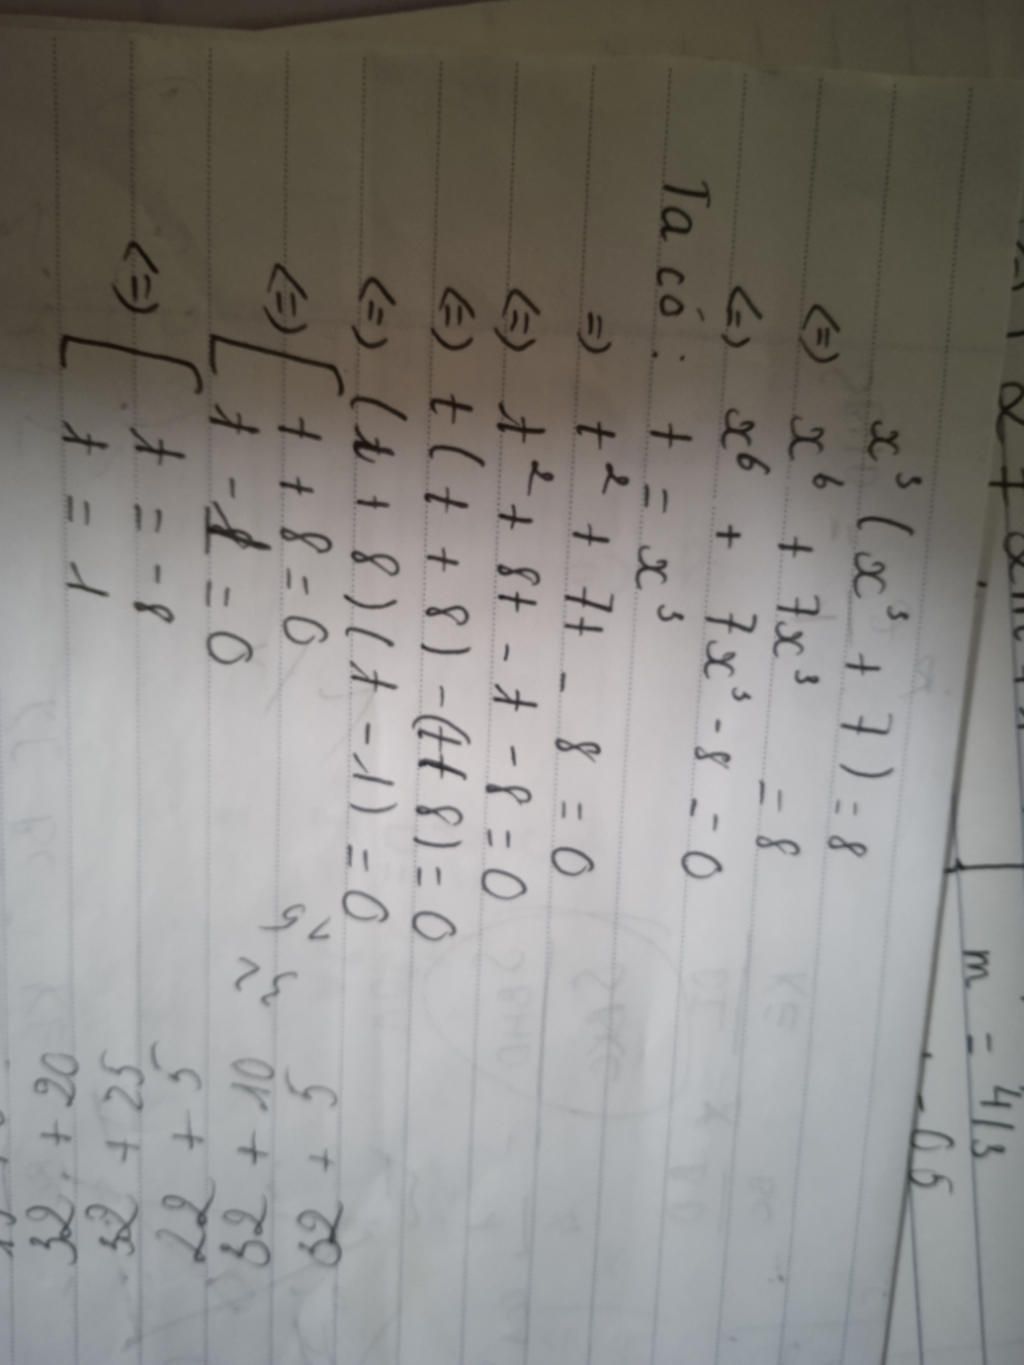 x³(x³ + 7) = 8
<=> x⁶ + 7x³ = 8
<=> x⁶ + 7x³ - 8 = 0
Ta có: t = x³
=> t² + 7t - 8 = 0
<=> t² + 8t - t - 8 = 0
<=> t(t + 8) - (t+8) = 0
<=> (t + 8)(t - 1) = 0
<=> [ t + 8 = 0
t - 1 = 0
<=> [ t = -8
t = 1
m = 4/3
32 + 5
32 + 10
22 + 5
32 + 25
32 + 20